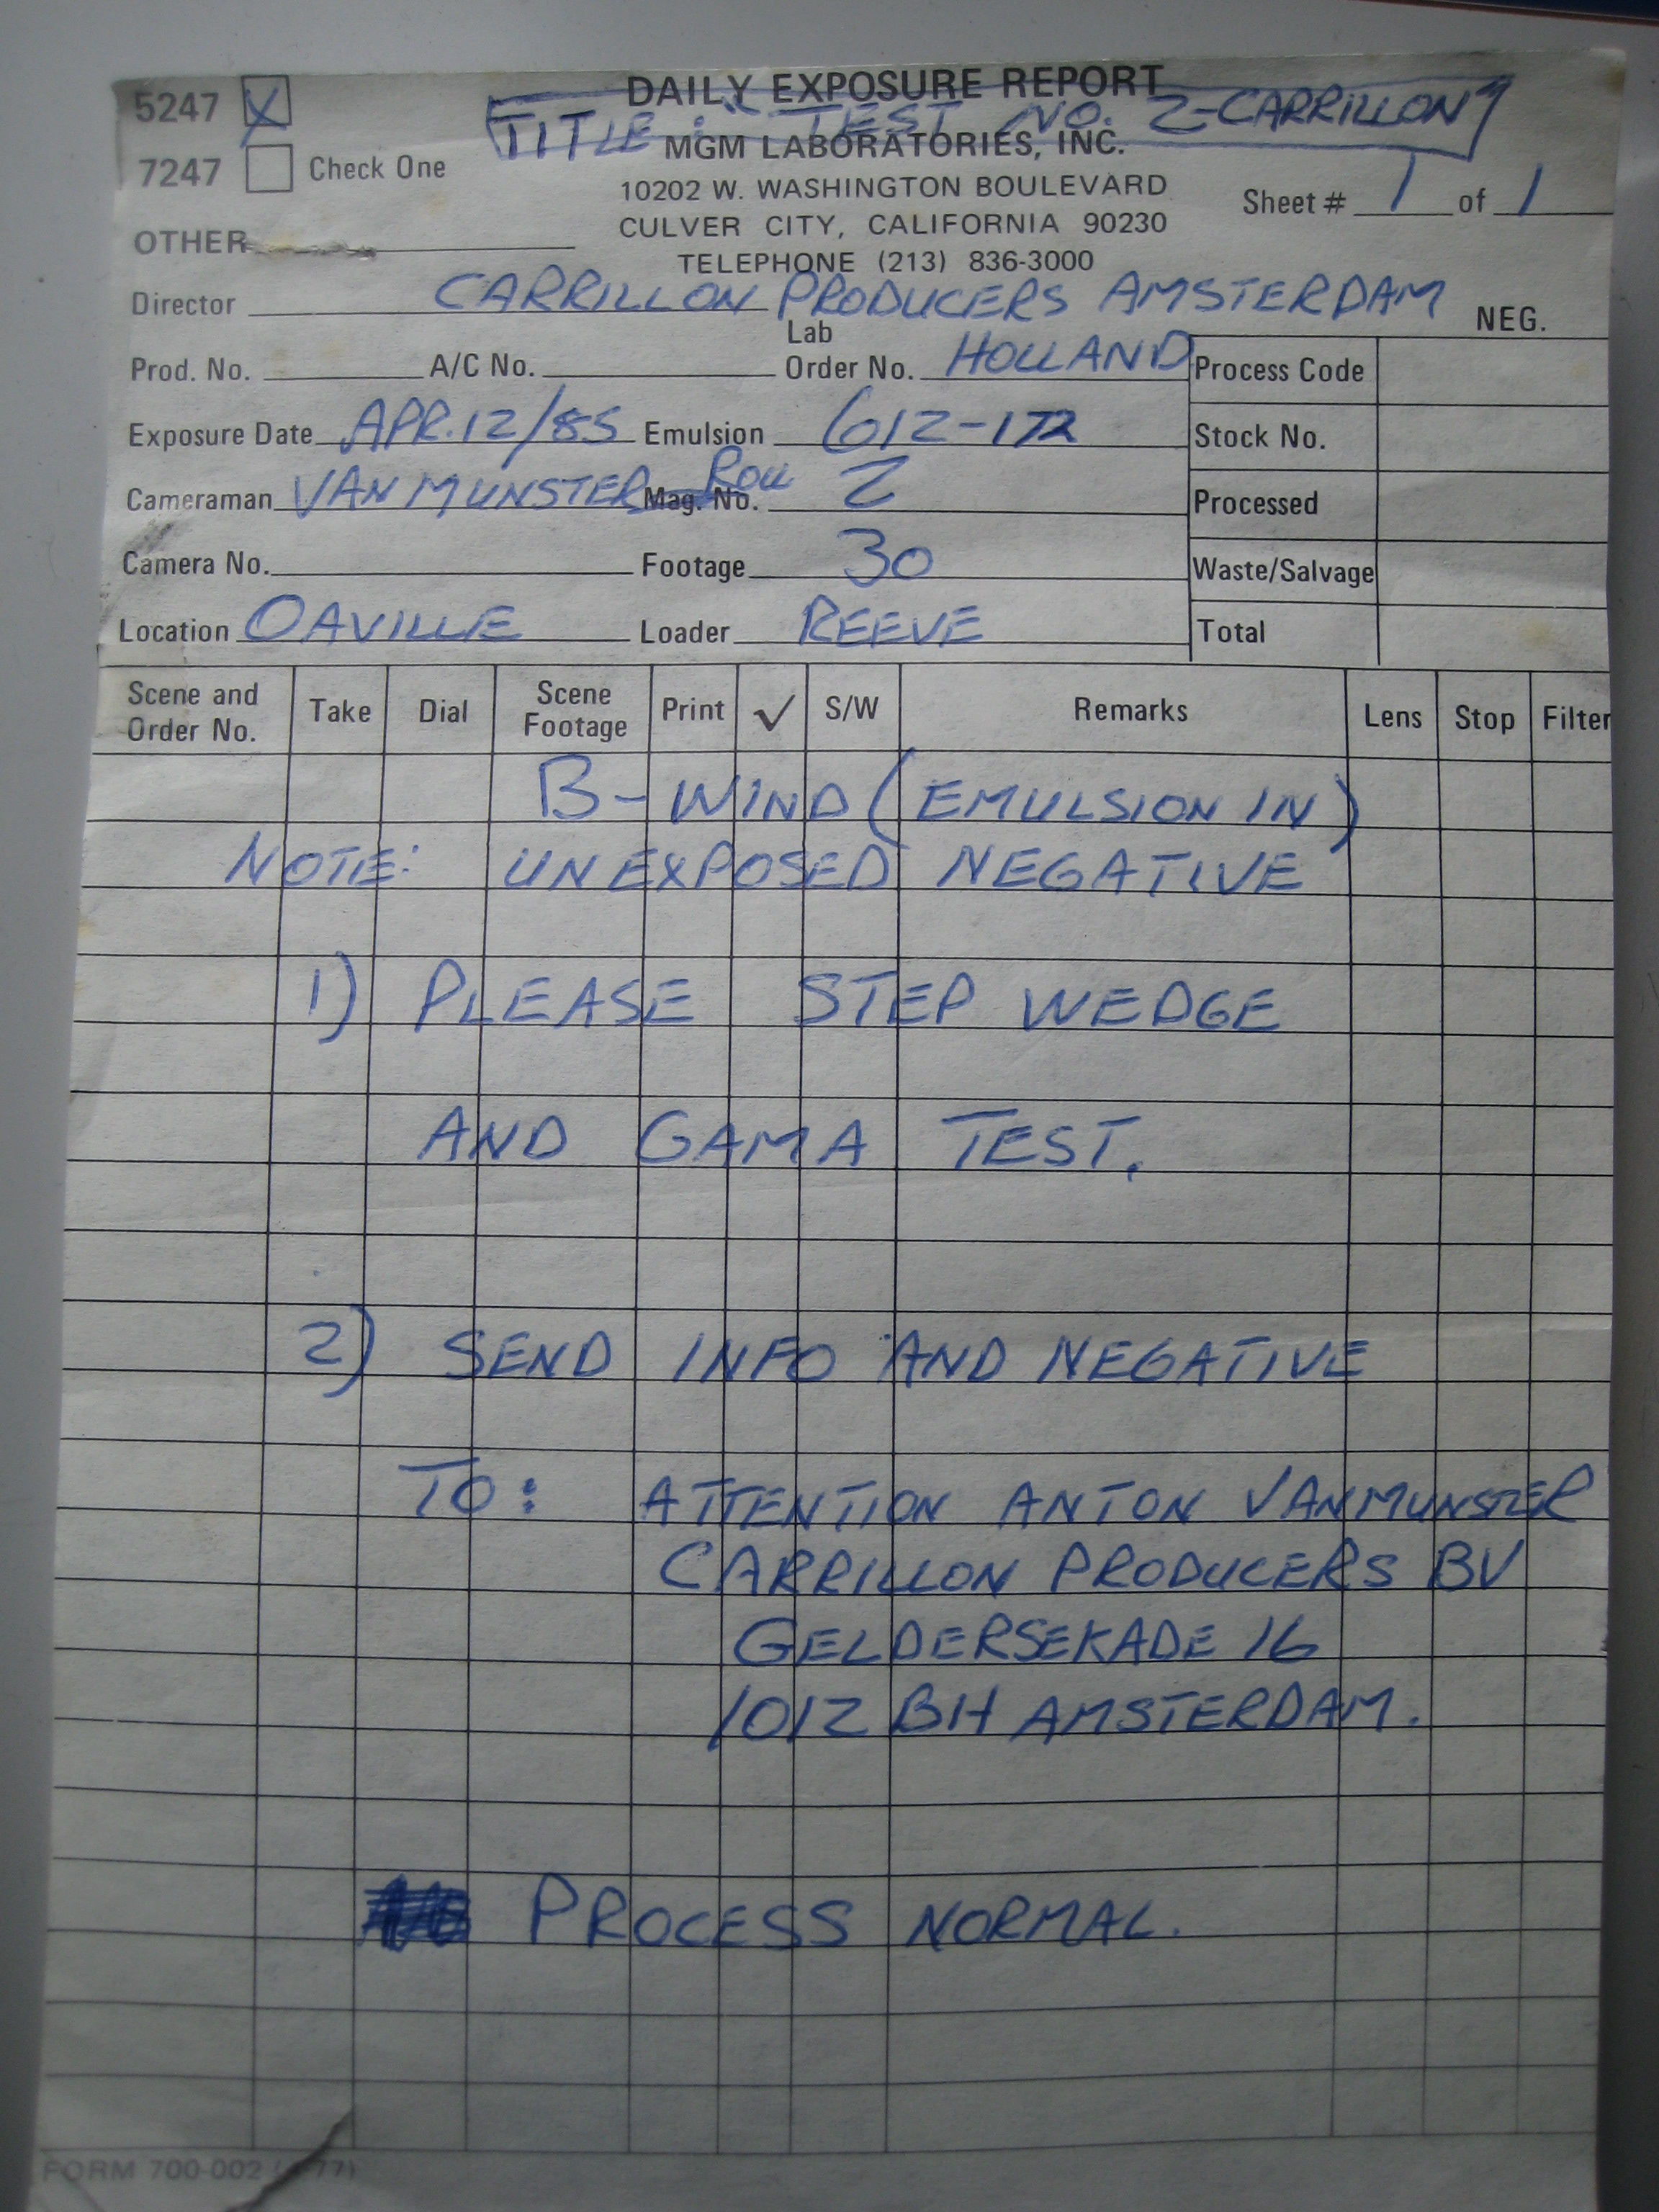 5247 X
DAILY EXPOSURE REPORT
TITLE: "TEST NO. 2-CARRILLON"
MGM LABORATORIES, INC.
7247 Check One
10202 W. WASHINGTON BOULEVARD
Sheet # 1 of 1
CULVER CITY, CALIFORNIA 90230
OTHER
TELEPHONE (213) 836-3000
Director CARRILLON PRODUCERS AMSTERDAM
NEG.
Prod. No. A/C No. Lab Order No. HOLLAND Process Code
Exposure Date APR.12/85 Emulsion 612-172 Stock No.
Cameraman VAN MUNSTER Mag. No. Roll 2 Processed
Camera No. Footage 30 Waste/Salvage
Location OAVILLE Loader REEVE Total
Scene and Order No. Take Dial Scene Footage Print ✓ S/W Remarks Lens Stop Filter
B-WIND (EMULSION IN)
NOTE: UNEXPOSED NEGATIVE
1) PLEASE STEP WEDGE
AND GAMA TEST.
2) SEND INFO AND NEGATIVE
TO: ATTENTION ANTON VANMUNSTER
CARRILLON PRODUCERS BV
GELDERSEKADE 16
1012 BH AMSTERDAM.
PROCESS NORMAL.
FORM 700-002